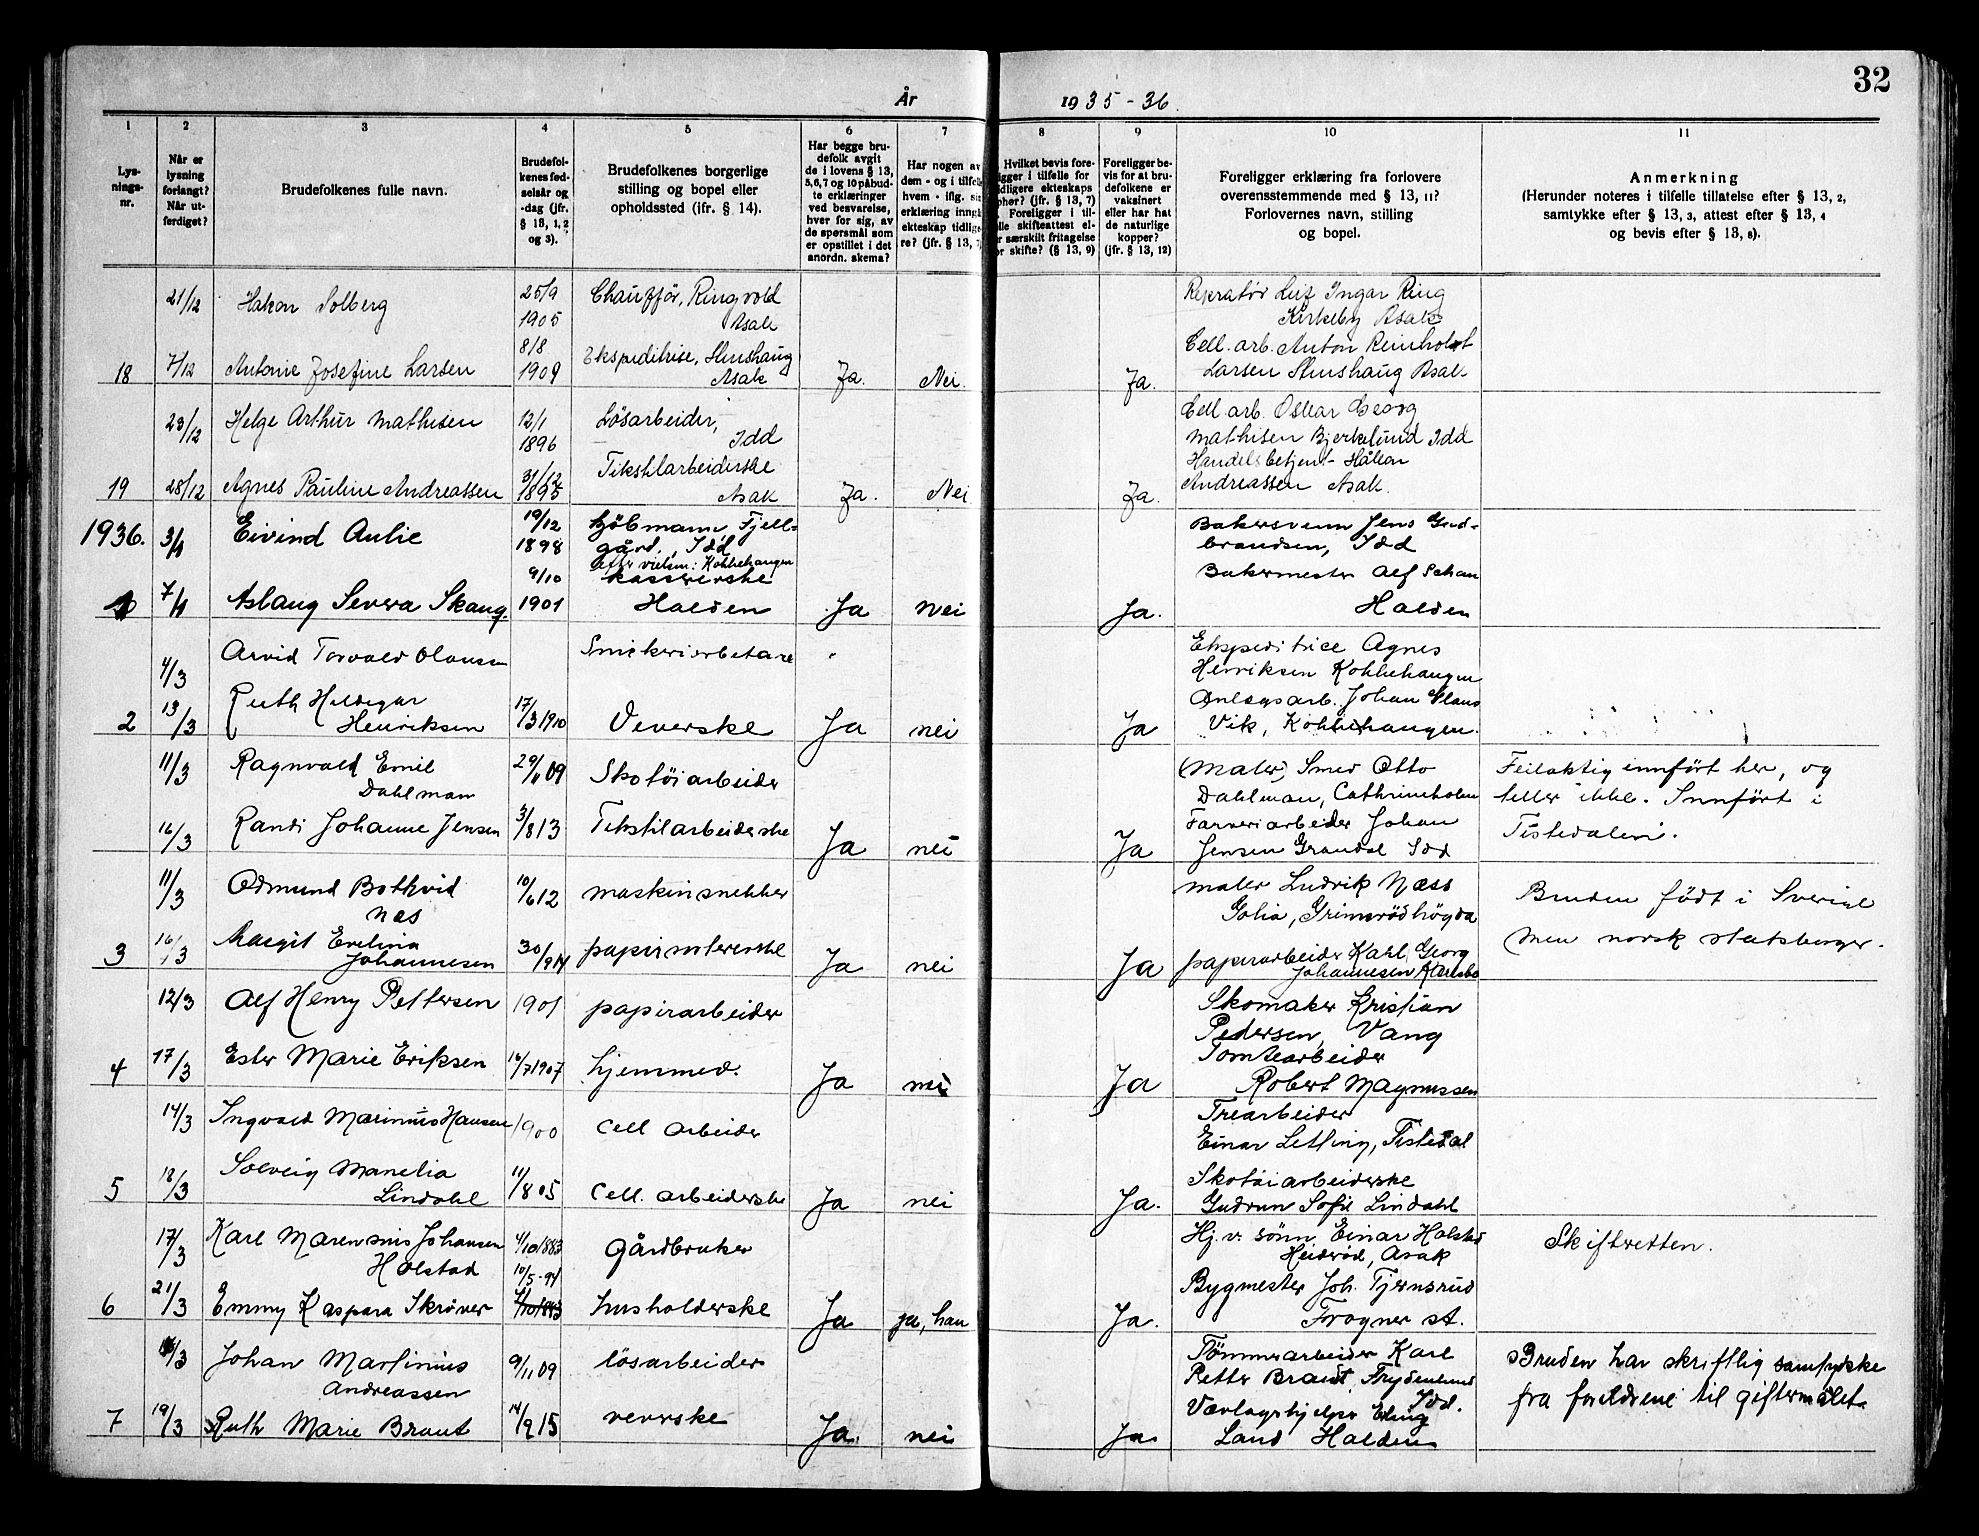 32
År 1935-36.
1 2 3 4 5 6 7 8 9 10 11
Lys-
nings-
nr.
Når er
lysning
forlangt?
Når ut-
ferdiget?
Brudefolkenes fulle navn.
Brudefol-
kenes fød-
selsår og
-dag (jfr.
§ 13, 1, 2
og 3).
Brudefolkenes borgerlige
stilling og bopel eller
opholdssted (ifr. § 14).
Har begge bru-
defolk avgit
de i lovens § 13,
5,6,7 og 10 påbud-
te erklæringer
ved besvarelse,
hver for sig, av
de spørsmål som
er opstillet i det
anordn. skema?
Har nogen av
dem - og i tilfelle
hvem - iflg. sin
erklæring inngå
ekteskap tidlige-
re? (jfr. § 13, 7
Hvilket bevis fore-
ligger i tilfelle for
tidligere ekteskaps
ophør? (jfr. § 13, 7)
Foreligger i til-
felle skifteattest el-
ler særskilt fritagelse
for skifte? (§ 13, 9)
Foreligger be-
vis for at bru-
defolkene er
vaksinert
eller har hat
de naturlige
kopper?
(jfr. § 13, 12)
Foreligger erklæring fra forlovere
overensstemmende med § 13, 11?
Forlovernes navn, stilling
og bopel.
Anmerkning
(Herunder noteres i tilfelle tillatelse efter § 13, 2,
samtykke efter § 13, 3, attest efter § 13, 4
og bevis efter § 13, 8).
21/12 Hakon Solberg 25/9 1905 Chauffør, Ringvold Asak
Reperatør Leif Ingar Ring
Kirkeby Asak
18 7/12 Antonie Josefine Larsen 8/8 1909 Ekspeditrise, Asak Ja. Nei Ja.
Cell. arb. Anton Reinholdt
Larsen Asak
23/12 Helge Arthur Mathisen 12/1 1896 Løsarbeider, Idd
Cell. arb. Oskar Georg
Mathisen Bjerkelund Idd
19 28/12 Agnes Pauline Andreassen 31/12 1895 Tekstilarbeiderske Asak Ja. Nei Ja.
Handelsbetjent Håkon
Andreassen Asak.
1936. 3/1 Eivind Aulie 19/12 1898 Kjøbmann, Fjell-
gård, Idd
efter vielsen: Kobbehaugen
Bakersvenn Jens Gud-
brandsen, Idd
1 7/1 Aslaug Skaug. 9/10 1901 kassererske
Halden Ja nei Ja.
Bakermester Alf Schau
Halden
4/3 Arvid Torvald Olausen
Ekspeditrice Agnes
Henriksen Kobbehaugen
2 13/3 Ruth Hildegar
Henriksen 17/3 1910 Veverske Ja nei Ja
Anlegsarb. Johan
Vik, Kobbehaugen.
11/3 Ragnvald Emil
Dahlman 29/11 09 Skotøiarbeider
(Maler) Smed Otto
Dahlman, Cathrineholm
Feilaktig innført her, og
teller ikke. Innført i
Tistedalen.
16/3 Randi Johanne Jensen 3/8 13 Tekstilarbeiderske Ja nei Ja
Farveriarbeider Johan
Jensen Grandal Idd
11/3 Odmund Bothvid
Næs 10/6 12 maskinsnekker
maler Ludvik Næss
Golia, Grimsrødhøgda
Bruden født i Sverige
men norsk statsborger.
3 16/3 Margit Evelina
Johannesen 30/9 14 papirsorererske Ja nei Ja
papirarbeider Karl Georg
Johannesen
12/3 Alf Henry Pettersen 1901 papirarbeider
Skomaker Kristian
Pedersen, Vang
4 17/3 Ester Marie Eriksen 16/7 1907 hjemmev. Ja nei Ja
Tomtearbeider
Robert Magnussen
14/3 Ingvald Marinius Hansen 1900 Cell arbeider
Trearbeider
Einar Letting, Tistedal
5 18/3 Solveig Manelia
Lindahl 11/8 05 Cell. arbeiderske Ja nei Ja.
Skotøiarbeiderske
Gudrun Sofie Lindahl
17/3 Karl Marensius Johansen
Holstad 4/10 1883 gårdbruker
Hj. v. sønn Einar Holstad
Heidrød, Asak
Skifteretten.
6 21/3 Emmy Kaspara Skrøver 10/5-94 4/10 1883 husholderske Ja ja, han Ja.
Bygmester Joh. Tjernsrud
Frogner st.
/3 Johan Martinius
Andreassen 9/11 09 løsarbeider
Tømmerarbeider Karl
Petter Braut Frydenlund
Idd.
Bruden har skriftlig samtykke
fra foreldrene til giftermålet.
7 19/3 Ruth Marie Braut 14/9 15 veverske Ja. nei Ja
Erling
Lund Halden